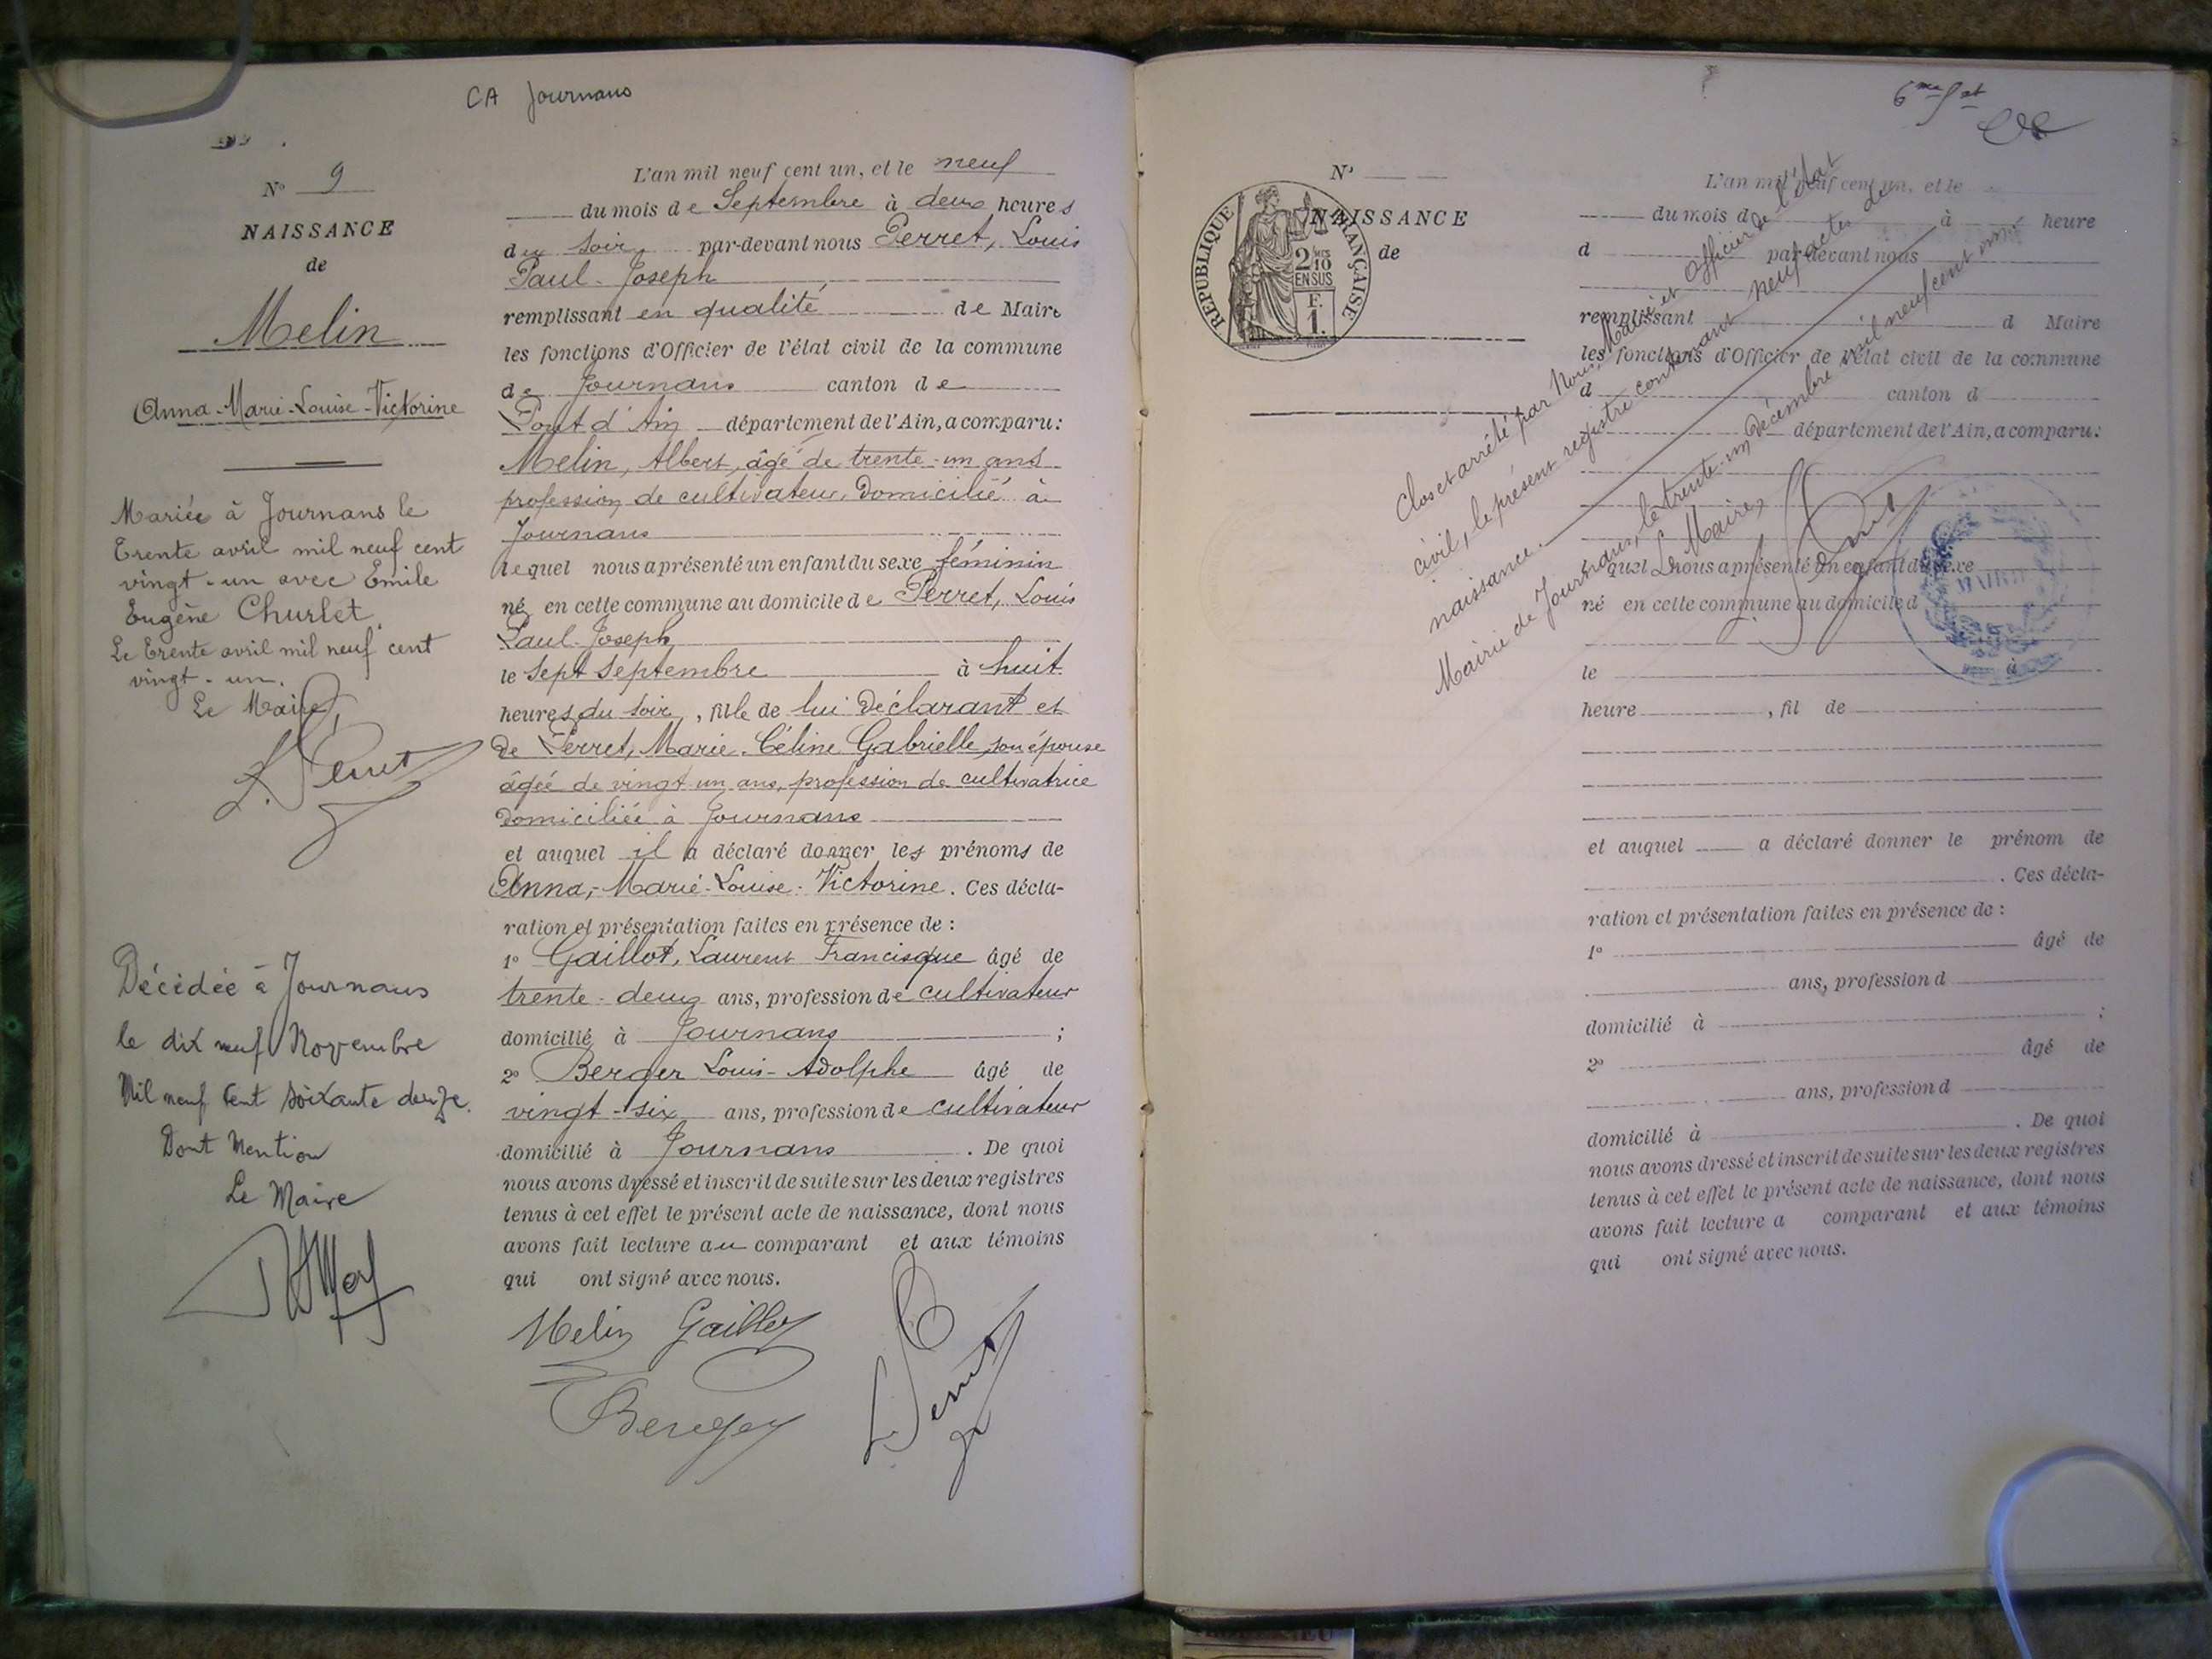 CA Journans
N° 9
NAISSANCE
de
Melin
Anna-Marie-Louise-Victorine
Mariée à Journans le
Trente avril mil neuf cent
vingt-un avec Emile
Eugène Churlet.
Le trente avril mil neuf cent
vingt-un.
Le Maire,
L. Perret
Décédée à Journans
le dix neuf Novembre
Mil neuf cent soixante douze.
Dont Mention
Le Maire
L'an mil neuf cent un, et le neuf
du mois de Septembre à deux heures
du soir, par-devant nous Perret, Louis
Paul-Joseph
remplissant en qualité de Maire
les fonctions d'Officier de l'état civil de la commune
de Journans canton de
Pont d'Ain département de l'Ain, a comparu :
Melin, Albert, âgé de trente-un ans
profession de cultivateur, domicilié à
Journans
lequel nous a présenté un enfant du sexe féminin
né en cette commune au domicile de Perret, Louis
Paul-Joseph
le sept septembre à huit
heures du soir, fille de lui déclarant et
de Perret, Marie-Céline Gabrielle, son épouse
âgée de vingt un ans, profession de cultivatrice
domiciliée à Journans
et auquel il a déclaré donner les prénoms de
Anna,-Marie-Louise-Victorine. Ces décla-
ration et présentation faites en présence de :
1° Gaillot, Laurent Francisque âgé de
trente-deux ans, profession de cultivateur
domicilié à Journans ;
2° Berger Louis-Adolphe âgé de
vingt-six ans, profession de cultivateur
domicilié à Journans. De quoi
nous avons dressé et inscrit de suite sur les deux registres
tenus à cet effet le présent acte de naissance, dont nous
avons fait lecture au comparant et aux témoins
qui ont signé avec nous.
Melin Gaillot
Berger
L. Perret
6me
N°
NAISSANCE
de
RÉPUBLIQUE FRANÇAISE
2 MES 10
EN SUS
F.
1.
L'an mil neuf cent un, et le
du mois d à heure
d par-devant nous
remplissant d Maire
les fonctions d'Officier de l'état civil de la commune
d canton d
département de l'Ain, a comparu :
quel nous a présenté un enfant du sexe
né en cette commune au domicile d
le à
heure , fil de
et auquel a déclaré donner le prénom de
. Ces décla-
ration et présentation faites en présence de :
1° âgé de
ans, profession d
domicilié à ;
2° âgé de
ans, profession d
domicilié à . De quoi
nous avons dressé et inscrit de suite sur les deux registres
tenus à cet effet le présent acte de naissance, dont nous
avons fait lecture a comparant et aux témoins
qui ont signé avec nous.
Clos et arrêté par Nous, Maire et Officier de l'état
civil, le présent registre contenant neuf actes de
naissance.
Mairie de Journans, le trente-un Décembre mil neuf cent un.
Le Maire,
L. Perret
MAIRIE